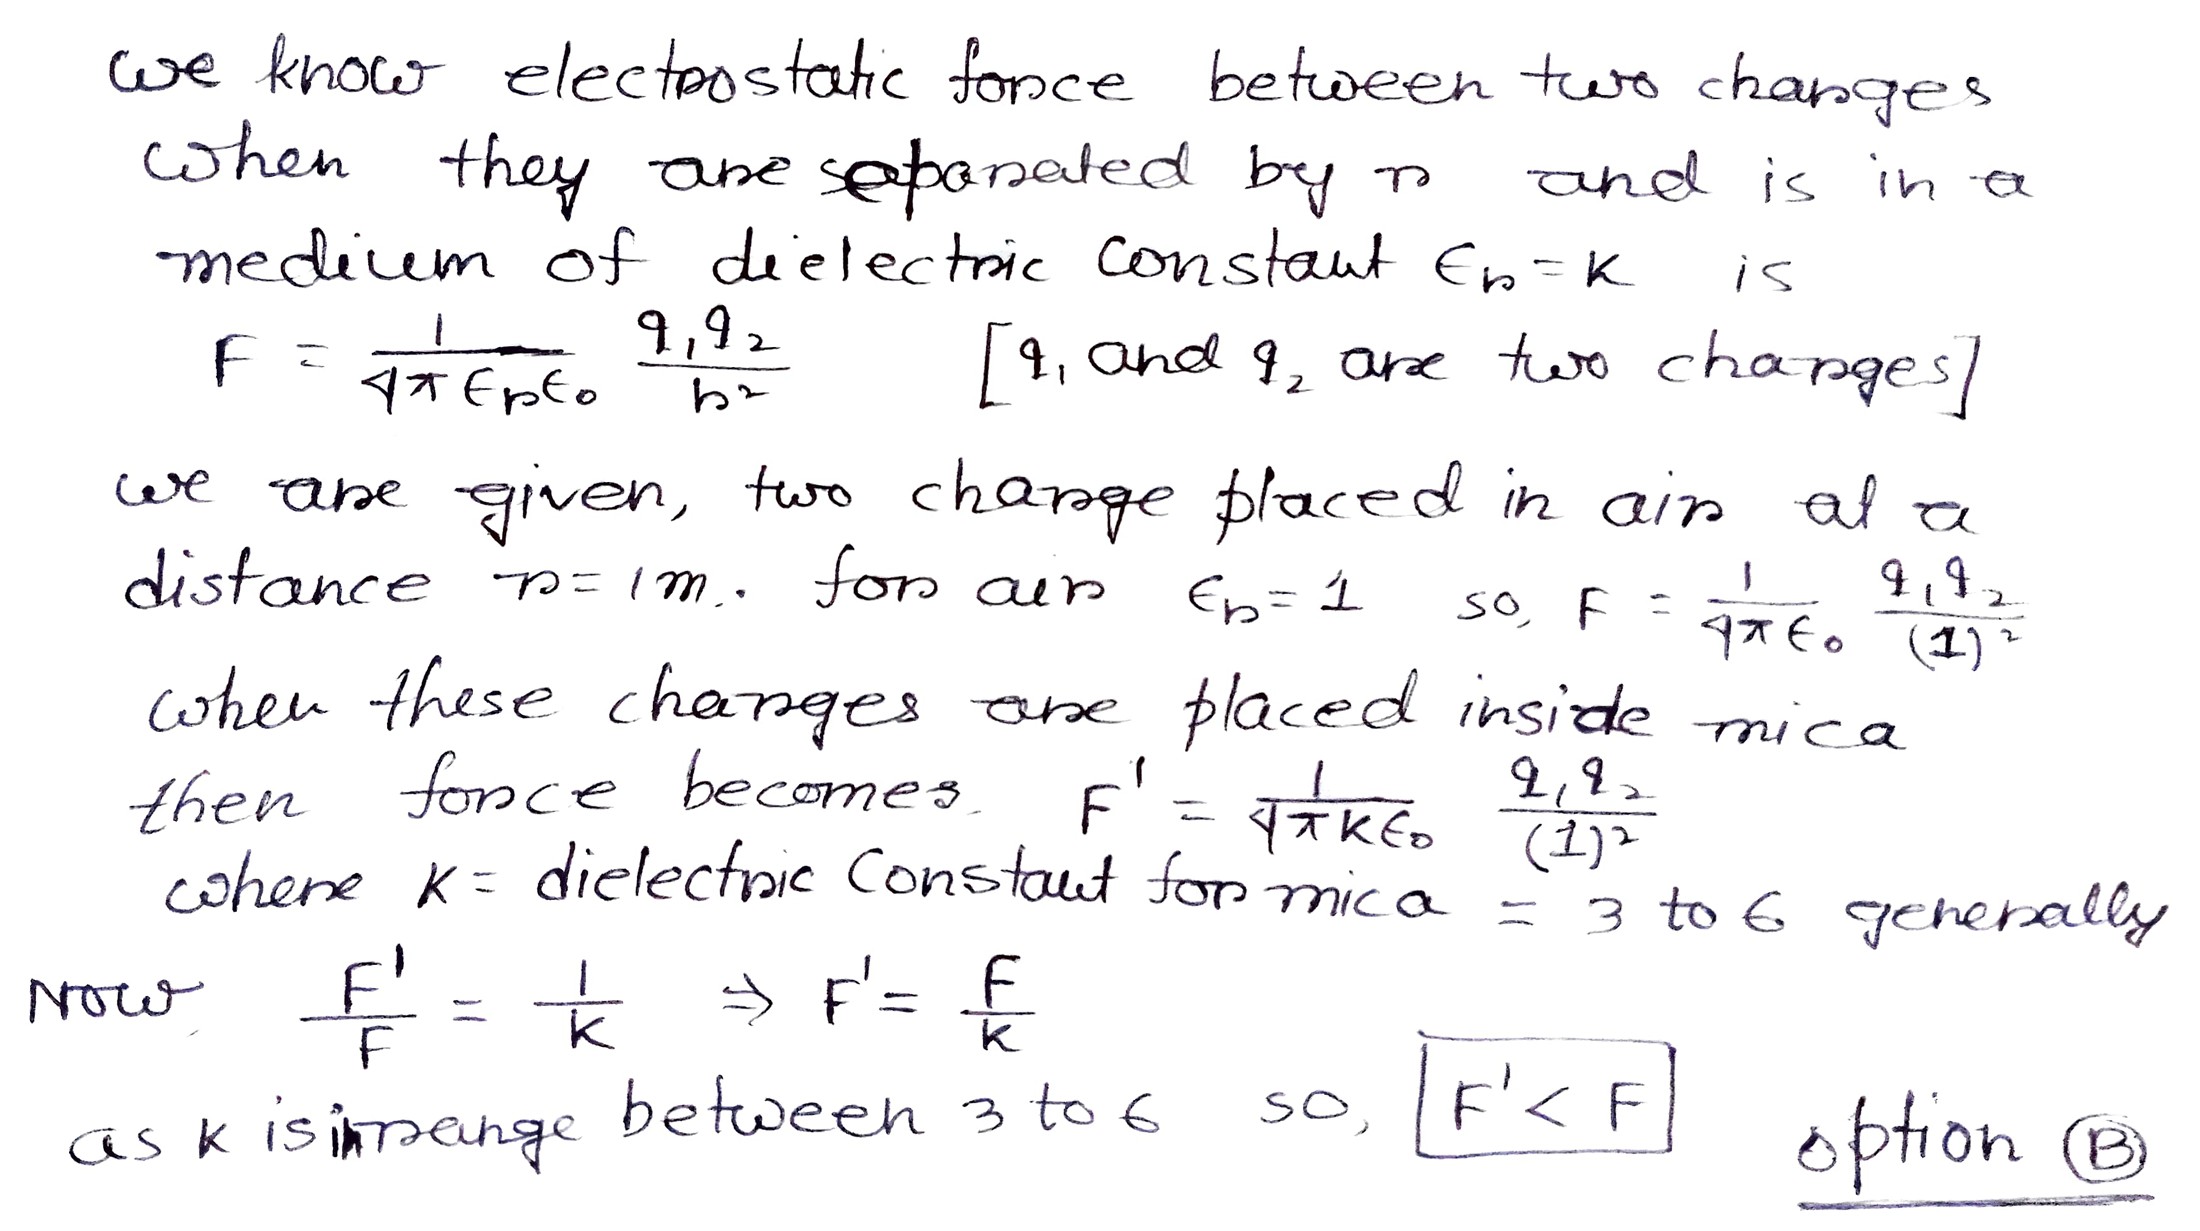 we know electrostatic force between two charges
when they are separated by r and is in a
medium of dielectric constant ϵr = K is
F = 1/4πϵrϵ0 q1q2/r² [q1 and q2 are two charges]
we are given, two charge placed in air at a
distance r = 1m. for air ϵr = 1 so, F = 1/4πϵ0 q1q2/(1)²
when these charges are placed inside mica
then force becomes. F' = 1/4πKϵ0 q1q2/(1)²
where K = dielectric Constant for mica = 3 to 6 generally
Now, F'/F = 1/K ⇒ F' = F/K
as K is in range between 3 to 6 so, F' < F
option B